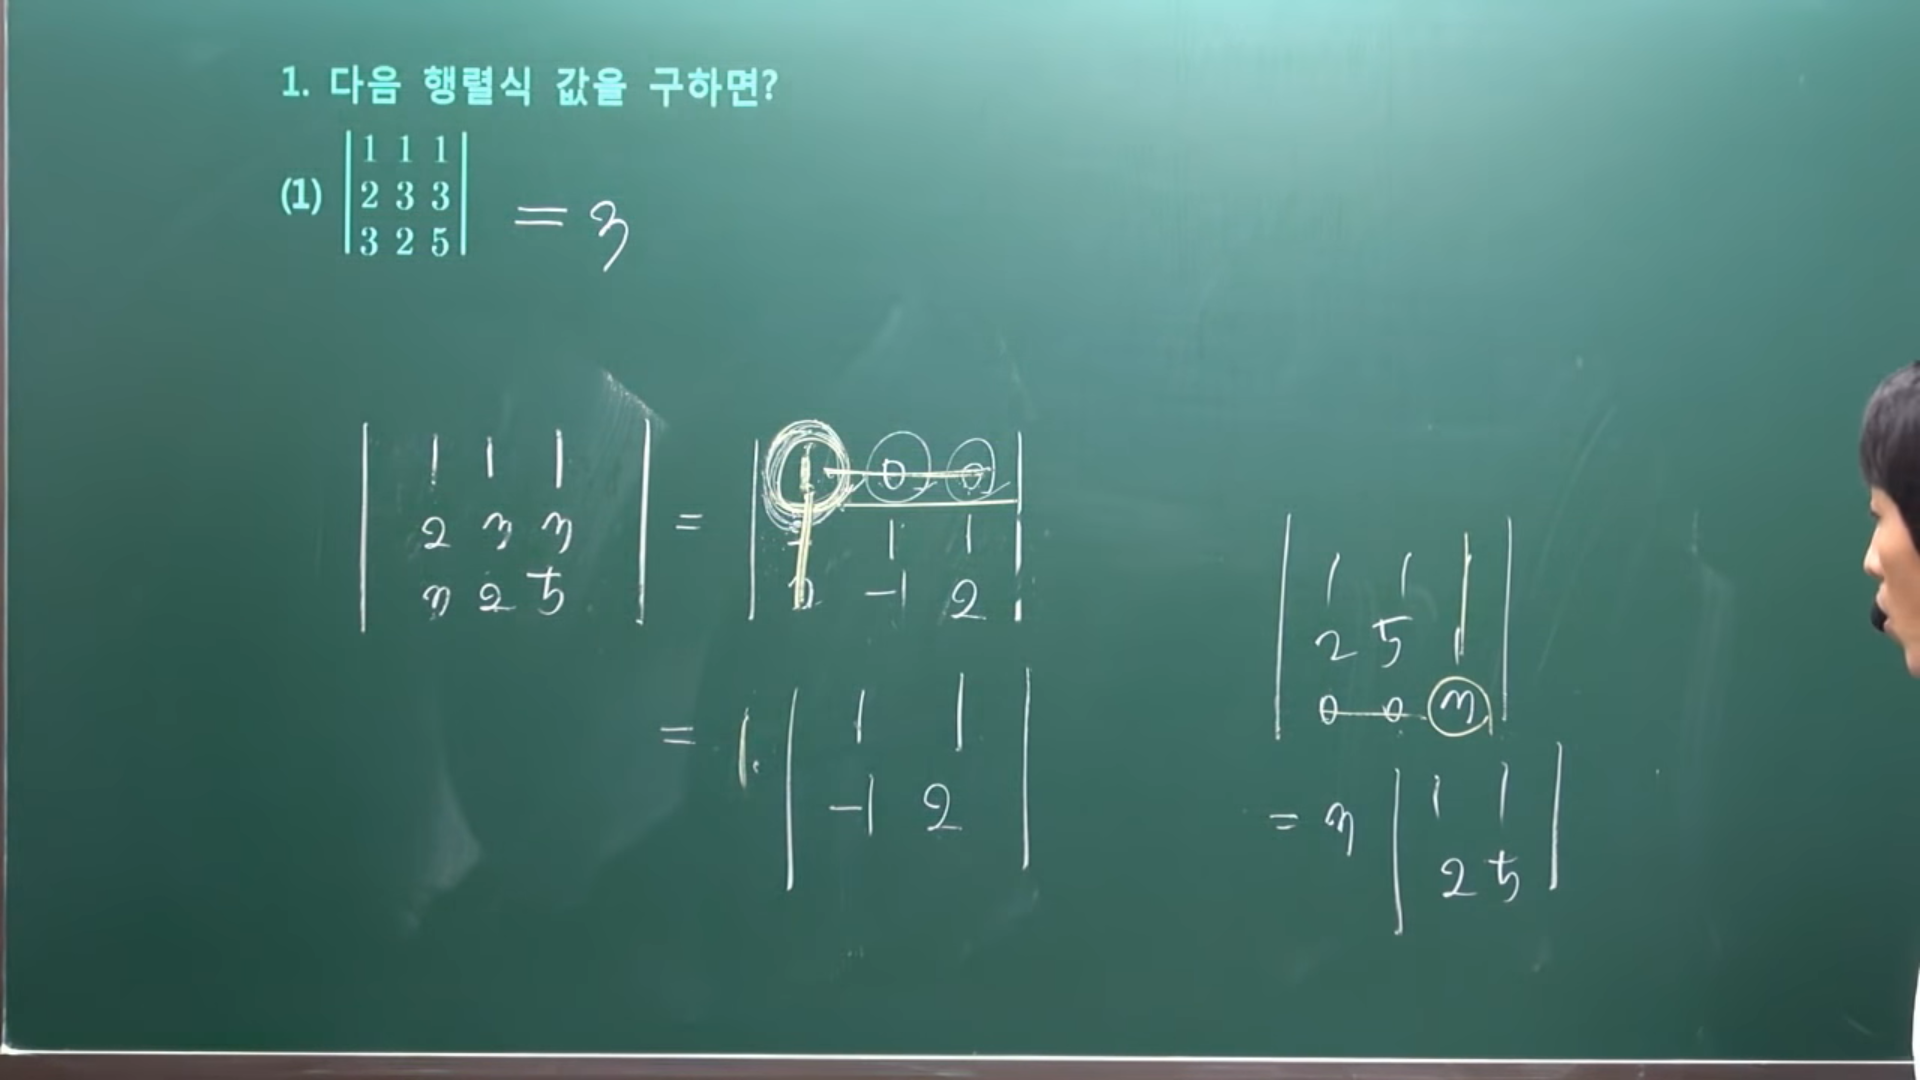 1. 다음 행렬식 값을 구하면?
(1) | 1 1 1 |
| 2 3 3 | = 3
| 3 2 5 |
| 1 1 1 |
| 2 3 3 | =
| 3 2 5 |
| 1 0 0 |
| 1 1 |
| -1 2 |
= 1 · | 1 1 |
| -1 2 |
| 1 1 1 |
| 2 5 1 |
| 0 0 3 |
= 3 | 1 1 |
| 2 5 |